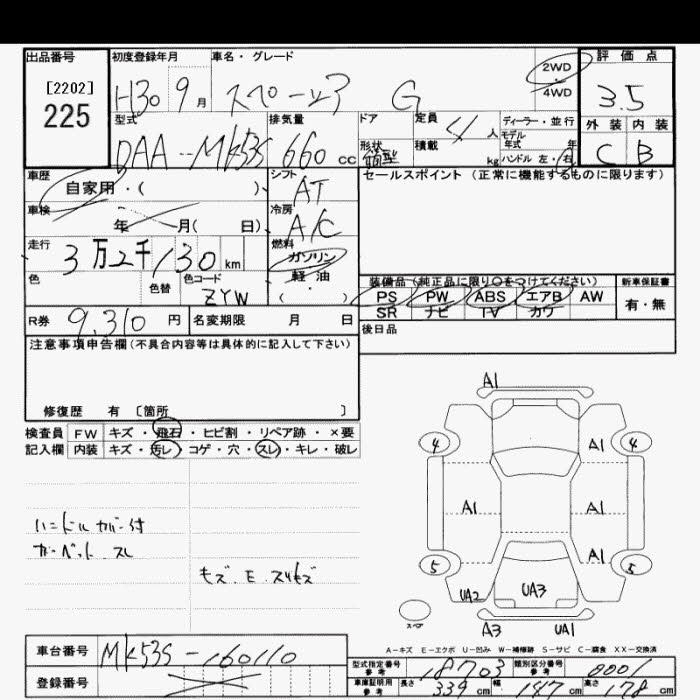 出品番号 初度登録年月 車名・グレード 2WD・4WD 評価点
[2202]
225
H30 9月 スペーシア G 3.5
型式 排気量 ドア 定員 ディーラー・並行 外装 内装
DAA-MK53S 660cc 4人 モデル年式 年 C B
形状 箱型 積載 kg ハンドル 左・右
車歴 シフト セールスポイント (正常に機能するものに限ります)
自家用・( ) AT
車検 冷房
年 月( 日) A/C
走行 燃料
3万2千130km ガソリン
軽油
色 色替 色コード ( )
ZYW
装備品(純正品に限り○をつけてください) 新車保証書
PS PW ABS エアB AW 有・無
SR ナビ TV カワ
R券 9,310円 名変期限 月 日 後日品
注意事項申告欄(不具合内容等は具体的に記入して下さい)
修復歴 有 〔箇所 〕
検査員 FW キズ・飛石・ヒビ割・リペア跡・×要
記入欄 内装 キズ・汚レ・コゲ・穴・スレ・キレ・破レ
A1
4 A1 4
A1 A1
A1
5 5
UA2 UA3
スペア
A3 UA1
ハンドルカバー付
カーペット スレ
モズ.E.スリキズ
A-キズ E-エクボ U-凹み W-補修跡 S-サビ C-腐食 XX-交換済
車台番号 MK53S-160110
登録番号
型式指定番号 参考 18703 類別区分番号 参考 0001
車庫証明用 参考 長さ 339cm 幅 147cm 高さ 178cm